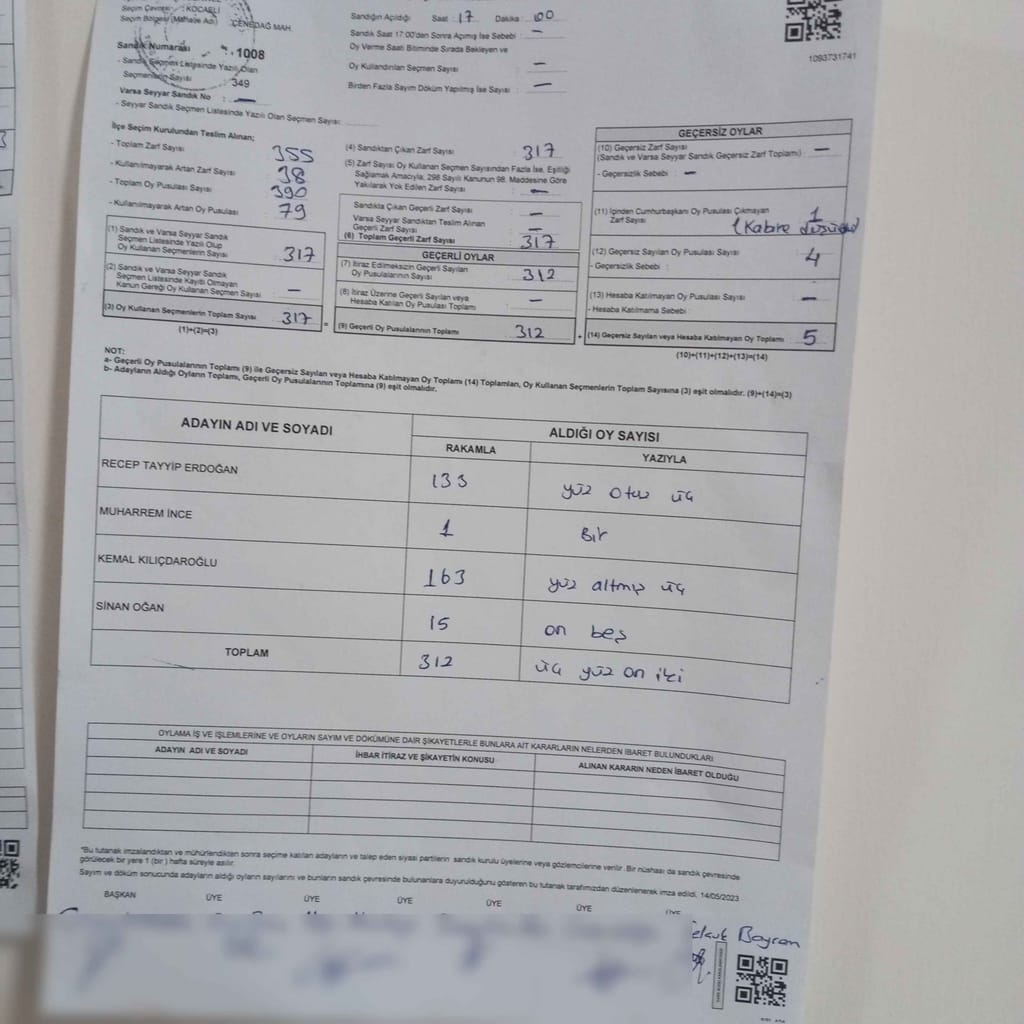 Seçim Çevresi : KOCAELİ
Seçim Bölgesi (Mahalle Adı) : ÇENEDAĞ MAH.
Sandık Numarası : 1008
- Sandık Seçmen Listesinde Yazılı Olan
Seçmenlerin Sayısı : 349
Varsa Seyyar Sandık No : —
- Seyyar Sandık Seçmen Listesinde Yazılı Olan Seçmen Sayısı:
Sandığın Açıldığı Saat : 17 Dakika : 00
Sandık Saat 17:00'den Sonra Açımış İse Sebebi : —
Oy Verme Saati Bitiminde Sırada Bekleyen ve
Oy Kullandırılan Seçmen Sayısı : —
Birden Fazla Sayım Döküm Yapılmış İse Sayısı : —
1093731741
İlçe Seçim Kurulundan Teslim Alınan;
- Toplam Zarf Sayısı 355
- Kullanılmayarak Artan Zarf Sayısı 38
- Toplam Oy Pusulası Sayısı 390
- Kullanılmayarak Artan Oy Pusulası 79
(1) Sandık ve Varsa Seyyar Sandık
Seçmen Listesinde Yazılı Olup
Oy Kullanan Seçmenlerin Sayısı : 317
(2) Sandık ve Varsa Seyyar Sandık
Seçmen Listesinde Kayıtlı Olmayan
Kanun Gereği Oy Kullanan Seçmen Sayısı : —
(3) Oy Kullanan Seçmenlerin Toplam Sayısı : 317
(1)+(2)=(3)
(4) Sandıktan Çıkan Zarf Sayısı : 317
(5) Zarf Sayısı Oy Kullanan Seçmen Sayısından Fazla İse, Eşitliği
Sağlamak Amacıyla, 298 Sayılı Kanunun 98. Maddesine Göre
Yakılarak Yok Edilen Zarf Sayısı : —
Sandıkla Çıkan Geçerli Zarf Sayısı : —
Varsa Seyyar Sandıktan Teslim Alınan
Geçerli Zarf Sayısı : —
(6) Toplam Geçerli Zarf Sayısı : 317
GEÇERLİ OYLAR
(7) İtiraz Edilmeksizin Geçerli Sayılan
Oy Pusulalarının Sayısı : 312
(8) İtiraz Üzerine Geçerli Sayılan veya
Hesaba Katılan Oy Pusulası Toplamı : —
(9) Geçerli Oy Pusulalarının Toplamı : 312
GEÇERSİZ OYLAR
(10) Geçersiz Zarf Sayısı
(Sandık ve Varsa Seyyar Sandık Geçersiz Zarf Toplamı) : —
- Geçersizlik Sebebi : —
(11) İçinden Cumhurbaşkanı Oy Pusulası Çıkmayan
Zarf Sayısı : 1
(Kabine
(12) Geçersiz Sayılan Oy Pusulası Sayısı : 4
- Geçersizlik Sebebi :
(13) Hesaba Katılmayan Oy Pusulası Sayısı : —
- Hesaba Katılmama Sebebi :
(14) Geçersiz Sayılan veya Hesaba Katılmayan Oy Toplamı : 5
(10)+(11)+(12)+(13)=(14)
NOT:
a- Geçerli Oy Pusulalarının Toplamı (9) ile Geçersiz Sayılan veya Hesaba Katılmayan Oy Toplamı (14) Toplamları, Oy Kullanan Seçmenlerin Toplam Sayısına (3) eşit olmalıdır. (9)+(14)=(3)
b- Adayların Aldığı Oyların Toplamı, Geçerli Oy Pusulalarının Toplamına (9) eşit olmalıdır.
ADAYIN ADI VE SOYADI
ALDIĞI OY SAYISI
RAKAMLA YAZIYLA
RECEP TAYYİP ERDOĞAN 133 yüz otuz üç
MUHARREM İNCE 1 Bir
KEMAL KILIÇDAROĞLU 163 yüz altmış üç
SİNAN OĞAN 15 on beş
TOPLAM 312 üç yüz on iki
OYLAMA İŞ VE İŞLEMLERİNE VE OYLARIN SAYIM VE DÖKÜMÜNE DAİR ŞİKAYETLERLE BUNLARA AİT KARARLARIN NELERDEN İBARET BULUNDUKLARI
ADAYIN ADI VE SOYADI İHBAR İTİRAZ VE ŞİKAYETİN KONUSU ALINAN KARARIN NEDEN İBARET OLDUĞU
*Bu tutanak imzalandıktan ve mühürlendikten sonra seçime katılan adayların ve talep eden siyasi partilerin sandık kurulu üyelerine veya gözlemcilerine verilir. Bir nüshası da sandık çevresinde
görülecek bir yere 1 (bir) hafta süreyle asılır.
Sayım ve döküm sonucunda adayların aldığı oyların sayılarını ve bunların sandık çevresinde bulunanlara duyurulduğunu gösteren bu tutanak tarafımızdan düzenlenerek imza edildi. 14/05/2023
BAŞKAN ÜYE ÜYE ÜYE ÜYE ÜYE ÜYE
Bayram